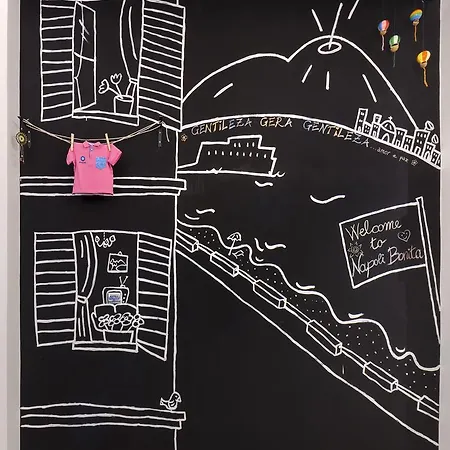 GENTiLEZA GERA GENTiLEZA
...amor e paz
Welcome
to
Napoli Bonita